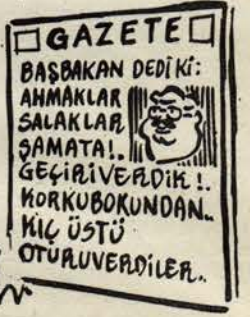 GAZETE
BAŞBAKAN DEDİKİ:
AHMAKLAR
SALAKLAR
ŞAMATA!..
GEÇİRİVERDİK!.
KORKUBOKUNDAN..
KIÇ ÜSTÜ
OTURUVERDİLER..